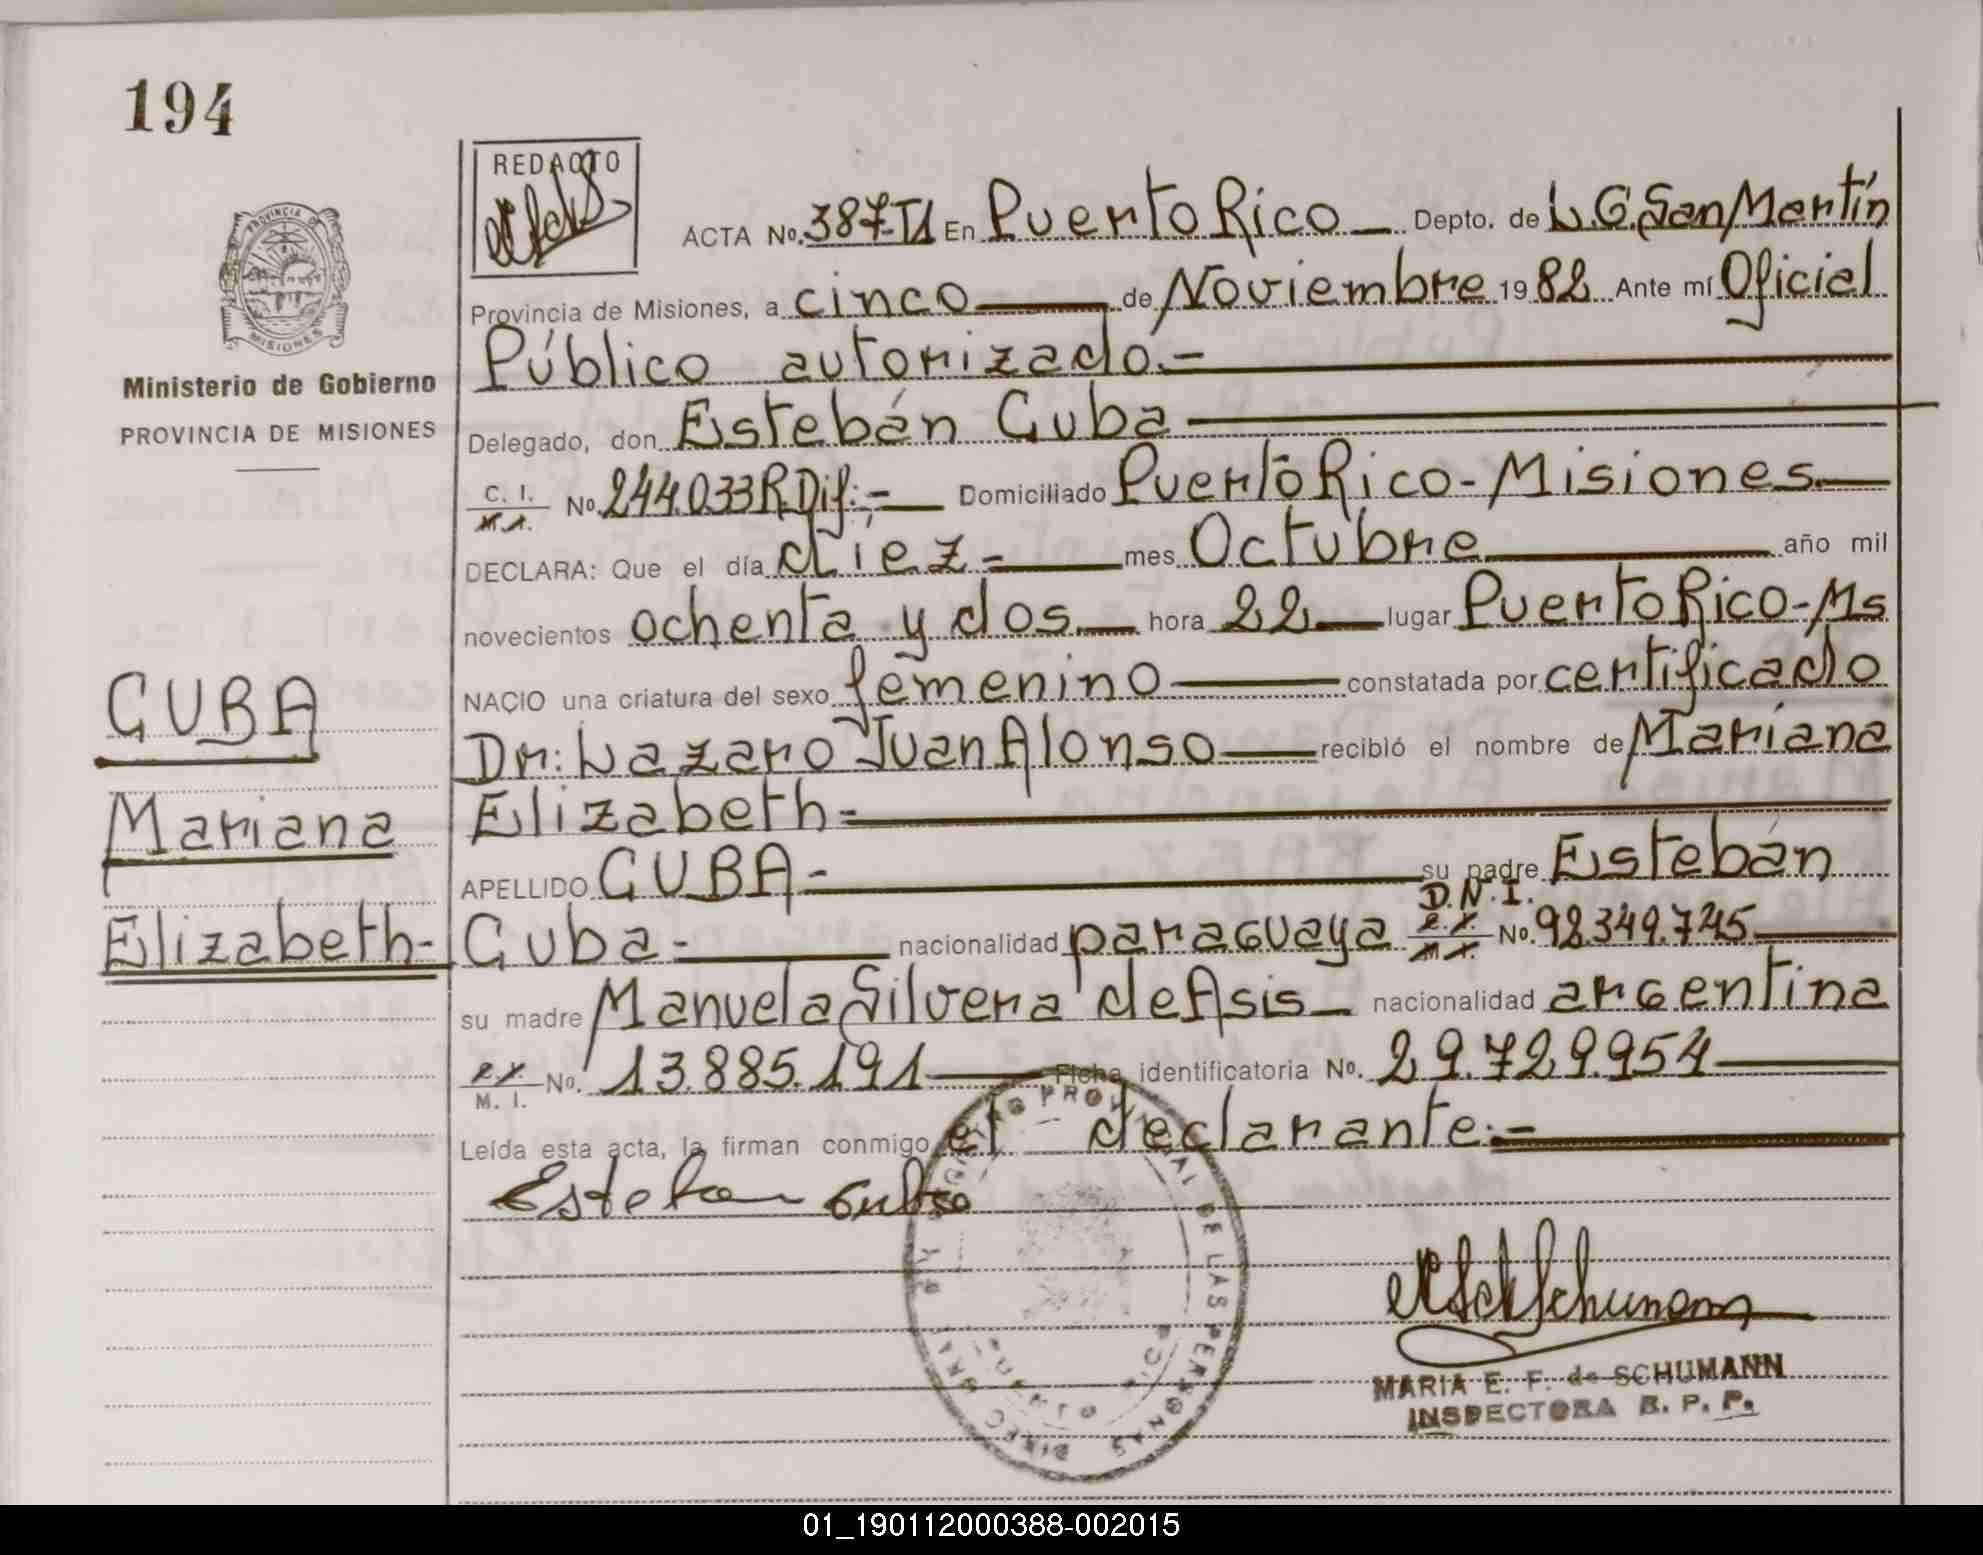 194
REDACTO
ACTA No. 387-T1 En Puerto Rico Depto. de L.G. San Martín
Provincia de Misiones, a cinco de Noviembre 1982 Ante mí Oficial
Público autorizado.-
Delegado, don Estebán Cuba
C. I.
M. I.
No. 244.033 R.Dif:- Domiciliado Puerto Rico - Misiones
DECLARA: Que el día diez- mes Octubre año mil
novecientos ochenta y dos. hora 22 lugar Puerto Rico-Ms
NACIO una criatura del sexo femenino constatada por certificado
Dr: Lazaro Juan Alonso recibió el nombre de Mariana
Elizabeth-
APELLIDO CUBA- su padre Estebán
D.N.I.
Cuba- nacionalidad paraguaya No. 92.349.745
su madre Manuela Silvera de Asis nacionalidad argentina
M. I.
No. 13.885.191 Ficha identificatoria No. 29.729.954
Leída esta acta, la firman conmigo el declarante.-
Esteban Cuba
PROVINCIA DE
MISIONES
Ministerio de Gobierno
PROVINCIA DE MISIONES
CUBA
Mariana
Elizabeth-
DIREC. GRL. PROVINCIAL DE LAS PERSONAS
PUERTO RICO
MARIA E. F. de SCHUMANN
INSPECTORA R. P. P.
01_190112000388-002015